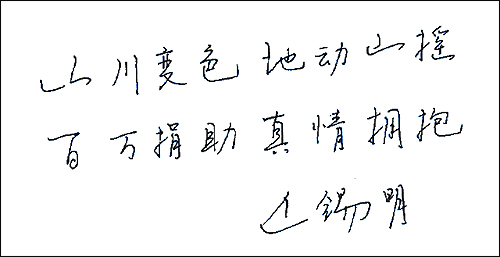 山川变色 地动山摇
百万捐助 真情拥抱
锡明